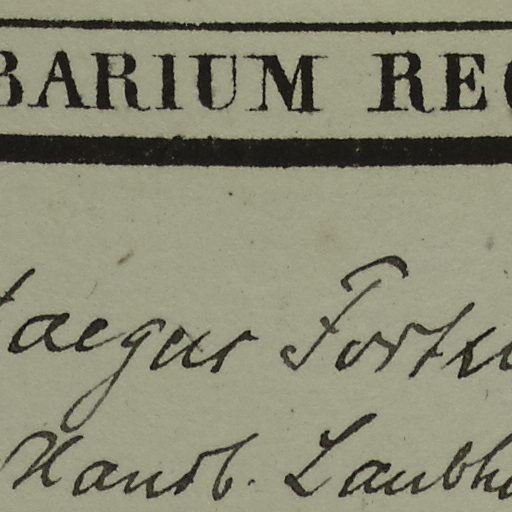 BARIUM REG
taegus Tortu
Handb. Laubho